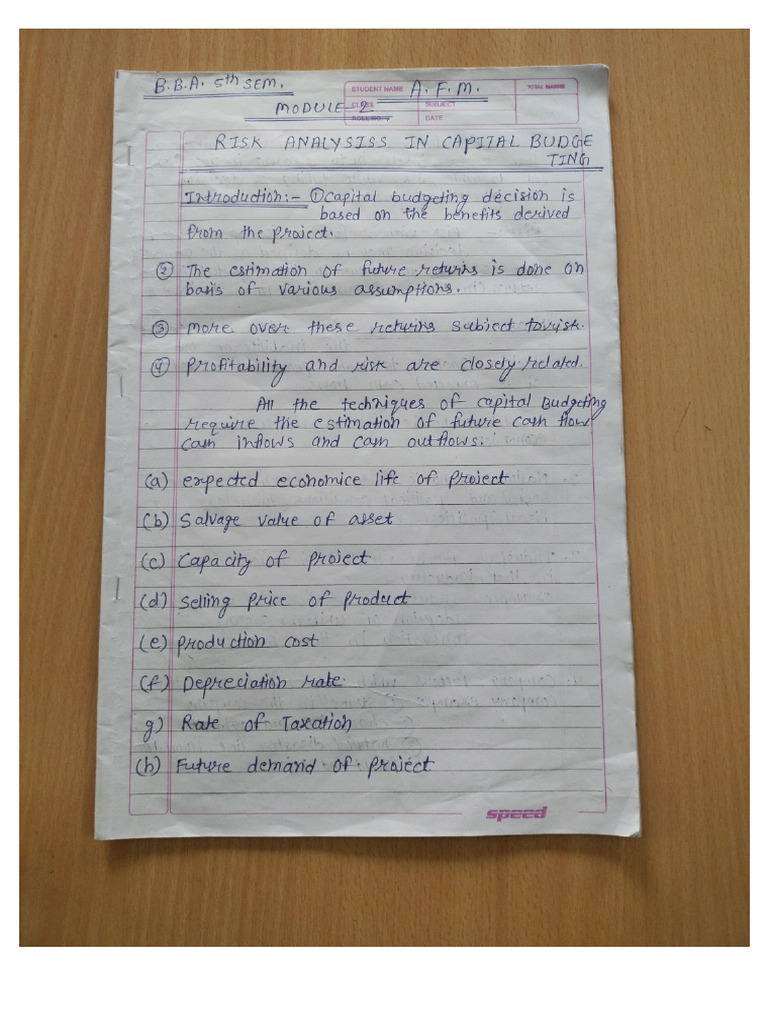 B.B.A. 5th SEM.
A.F.M.
STUDENT NAME
TOTAL MARKS
MODULE-2
CLASS
SUBJECT
ROLL NO.
DATE
RISK ANALYSISS IN CAPITAL BUDGE
TING
Introduction:- ① Capital budgeting decision is
based on the benefits derived
from the project.
② The estimation of future returns is done on
basis of various assumptions.
③ More over these returns subject to risk.
④ Profitability and risk are closely related.
All the techniques of capital Budgeting
require the estimation of future cash flow
cash inflows and cash outflows.
(a) expected economice life of project
(b) Salvage value of asset
(c) Capacity of project
(d) Selling price of product
(e) production cost
(f) Depreciation rate
g) Rate of Taxation
(h) Future demand of project
speed